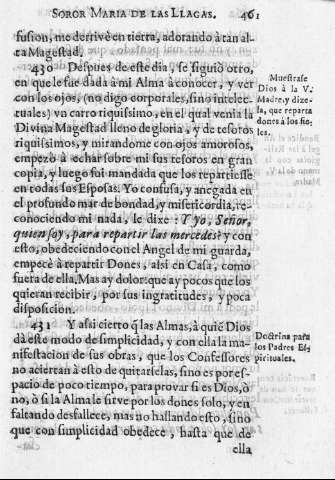 SOROR MARIA DE LAS LLAGAS. 461
fusion, me derrivè en tierra, adorando à tan al-
ta Magestad.
430 Despues de este dia, se siguiò otro,
en que le fue dada à mi Alma à conocer, y ver
con los ojos, (no digo corporales, sino intelec-
tuales) vn carro riquissimo, en el qual venia la
Divina Magestad lleno de gloria, y de tesoros
riquissimos, y mirandome con ojos amorosos,
empezò à echar sobre mi sus tesoros en gran
copia, y luego fui mandada que los repartiesse
en todas sus Esposas. Yo confusa, y anegada en
el profundo mar de bondad, y misericordia, re-
conociendo mi nada, le dixe: Y yo, Señor,
quien soy, para repartir las mercedes? y con
esto, obedeciendo con el Angel de mi guarda,
empecè à repartir Dones, assi en Casa, como
fuera de ella, Mas ay dolor que ay pocos que los
quieran recibir, por sus ingratitudes, y poca
disposicion.
431 Y assi cierto q̃ las Almas, à quiẽ Dios
dà este modo de simplicidad, y con ella la ma-
nifestacion de sus obras, que los Confessores
no aciertan à esto de quitarselas, sino es por es-
pacio de poco tiempo, para provar si es Dios, ò
no, ò si la Alma le sirve por los dones solo, y en
faltando desfallece, mas no hallando esto, sino
que con simplicidad obedece, hasta que de
ella
Muestrase
Dios à la V.
Madre, y dize-
la, que reparta
dones à los fie-
les.
Doctrina para
los Padres Es-
pirituales.